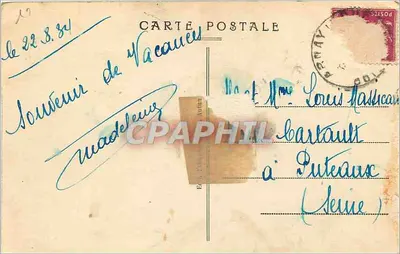 CARTE POSTALE
le 22.8.31
Souvenir de Vacances
Madeleine
POSTES
ARNAY
CPAPHIL
M et Mme Louis Massicard
Cartault
à Puteaux
(Seine)